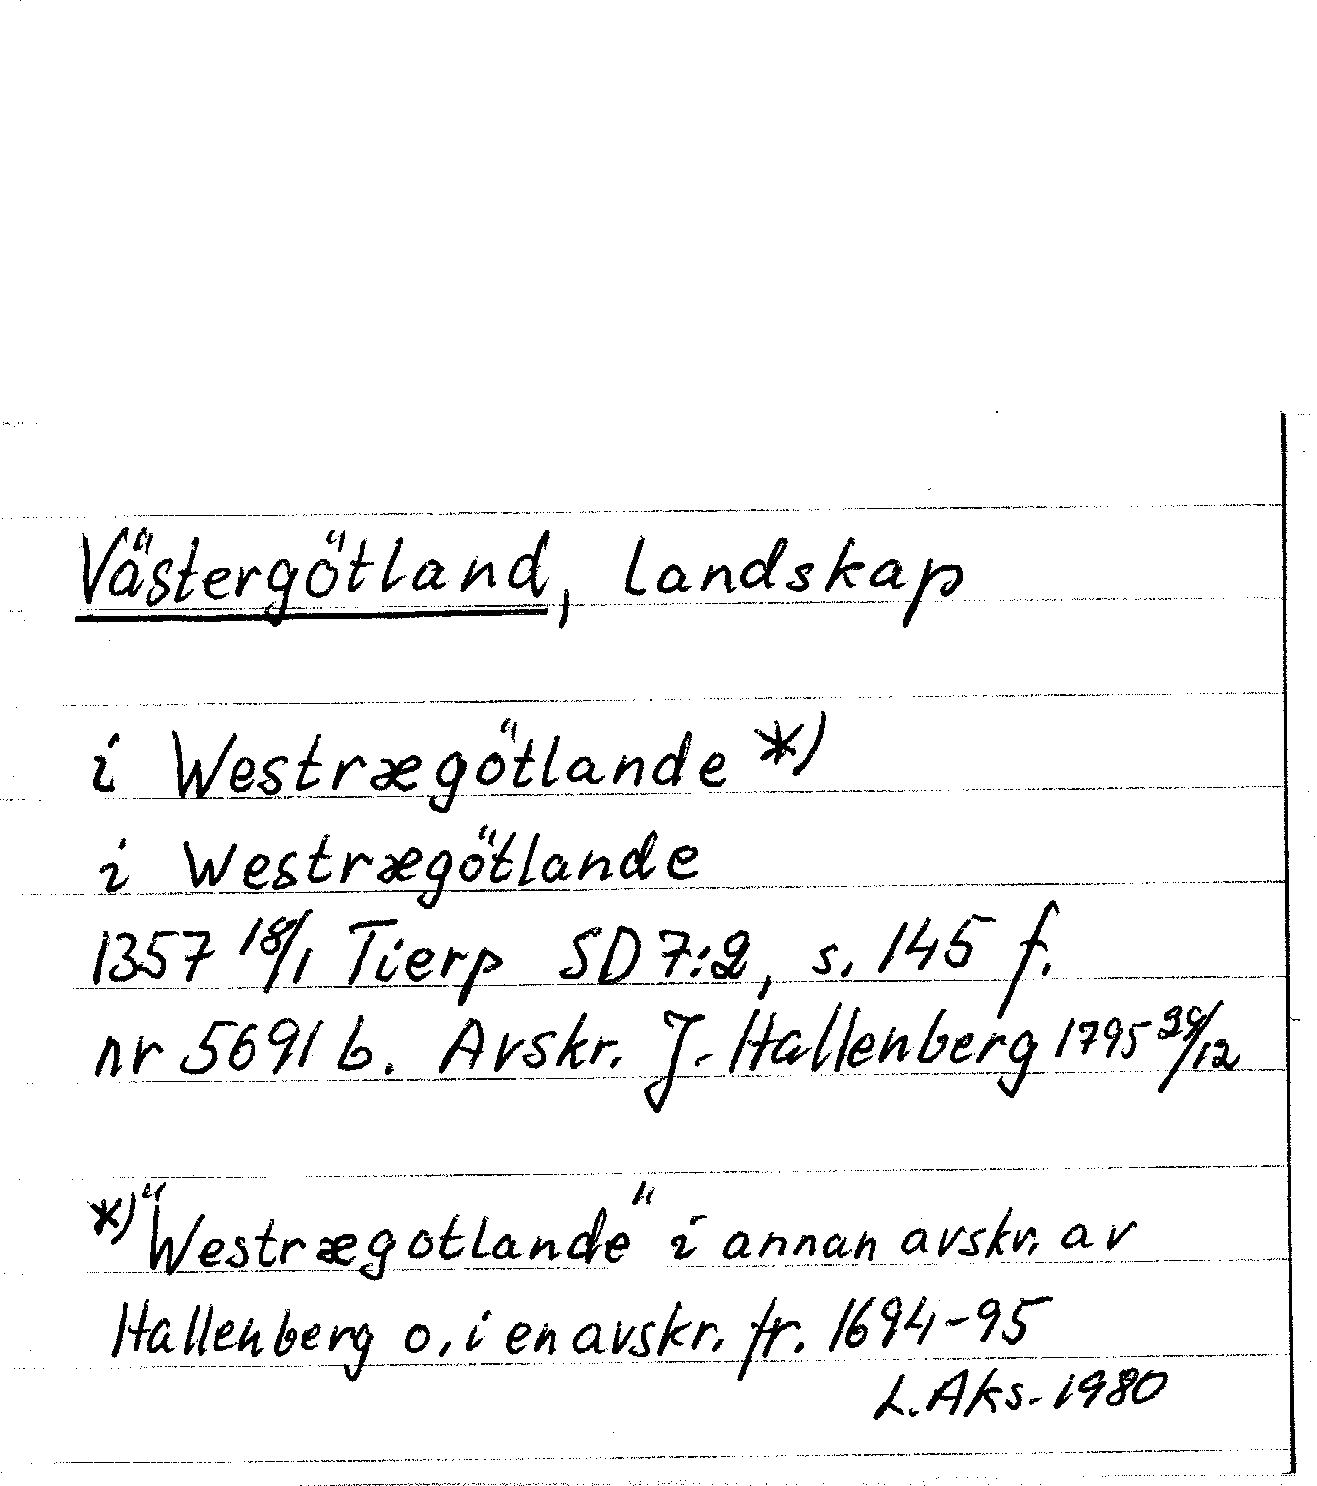 Västergötland, landskap
i Westrægötlande *)
i Westrægötlande
1357 18/1 Tierp SD 7:2, s. 145 f.
nr 5691 b. Avskr. J. Hallenberg 1795 29/12
*) "Westrægotlande" i annan avskr. av
Hallenberg o. i en avskr. fr. 1694-95
L. Aks. 1980